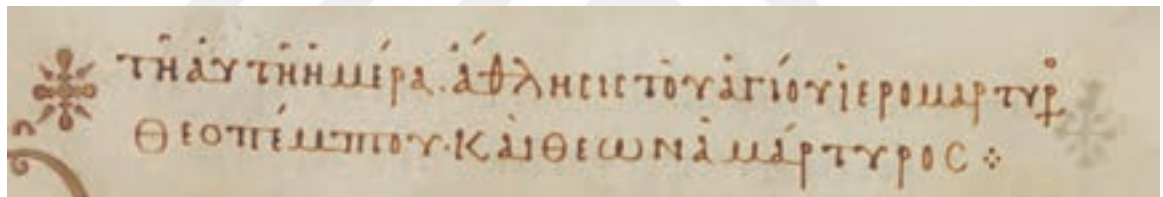 τῆ ἀυτῆ ἡμέρα. ἄθλησις τοῦ ἁγίου ἱερομάρτυρο
Θεοπέμπου. κὰι Θεωνᾶ μάρτυρος ⁘